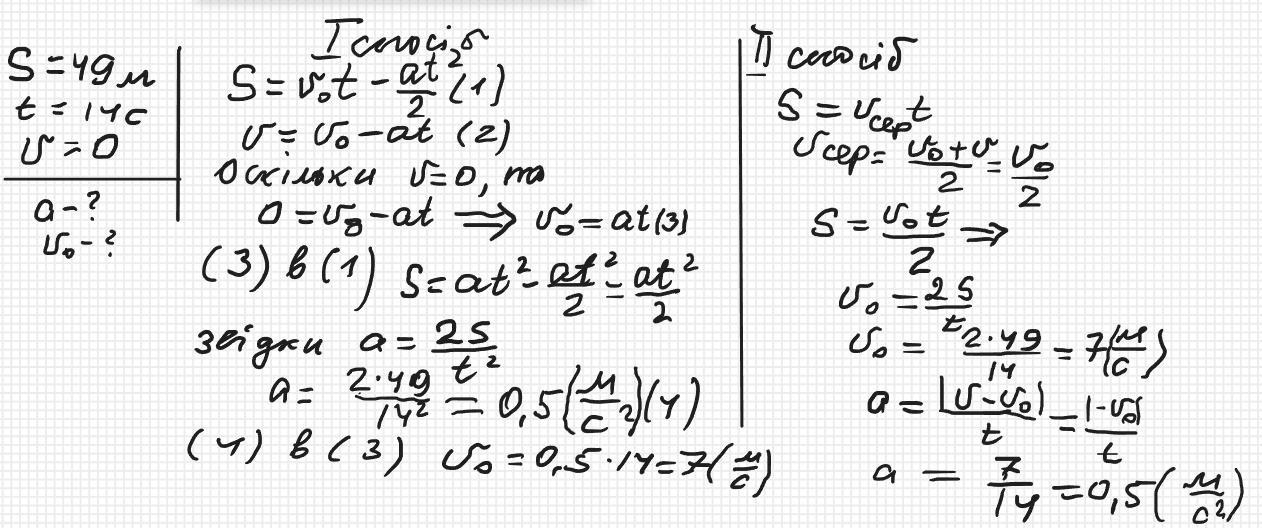 S = 49 м
t = 14 с
v = 0
a - ?
v₀ - ?
I спосіб
S = v₀t - at²/2 (1)
v = v₀ - at (2)
Оскільки v = 0, то
0 = v₀ - at ⟹ v₀ = at (3)
(3) в (1) S = at² - at²/2 = at²/2
звідки a = 2S/t²
a = 2·49/14² = 0,5 (м/с²) (4)
(4) в (3) v₀ = 0,5·14 = 7 (м/с)
II спосіб
S = v_сер t
v_сер = (v₀ + v)/2 = v₀/2
S = v₀t/2 ⟹
v₀ = 2S/t
v₀ = 2·49/14 = 7 (м/с)
a = |v - v₀|/t = |-v₀|/t
a = 7/14 = 0,5 (м/с²)